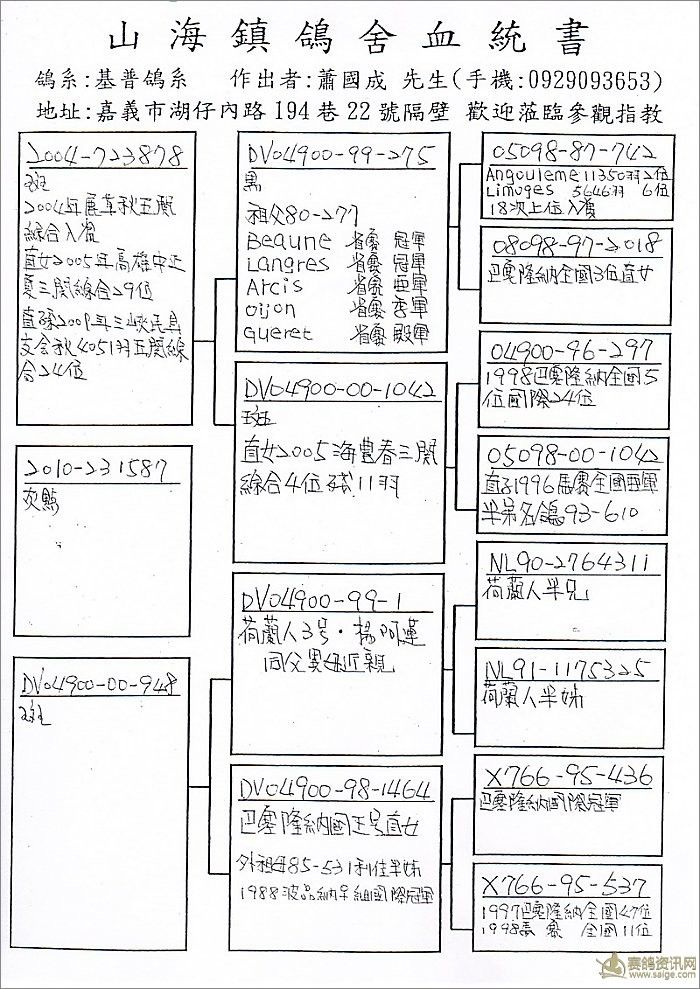 山海鎮鴿舍血統書
鴿系:基普鴿系 作出者:蕭國成 先生(手機:0929093653)
地址:嘉義市湖仔內路194巷22號隔壁 歡迎蒞臨參觀指教
2004-723878
斑
2004年展草秋五関
綜合入賞
直女2005年高雄中正
夏三関綜合29位
直孫2009年三峽民真
交会秋4051羽五関綜
合24位
2010-231587
灰點
DV04900-00-948
斑
DV04900-99-275
黑
祖父80-277
Beaune 省賽 冠軍
Langres 省賽 冠軍
Arcis 省賽 亜軍
Dijon 省賽 季軍
Gueret 省賽 殿軍
DV04900-00-1042
斑
直女2005海豊春三関
綜合4位残11羽
DV04900-99-1
荷蘭人3号·楊阿蓮
同父異母近親
DV04900-98-1464
巴塞隆納國王号直女
外祖母85-531利佳半姊
1988波品納早組國際冠軍
05098-87-742
Angouleme 11350羽2位
Limoges 5646羽 6位
18次上位入賞
08098-97-2018
巴塞隆納全國3位直女
04900-96-297
1998巴塞隆納全國5
位國際24位
05098-00-1042
直子1996馬賽全國亜軍
半弟名鴿93-610
NL90-2764311
荷蘭人半兄
NL91-1175325
荷蘭人半姊
X766-95-436
巴塞隆納國際冠軍
X766-95-537
1997巴塞隆納全國47位
1998馬賽 全國11位
赛鸽资讯网
www.saige.com